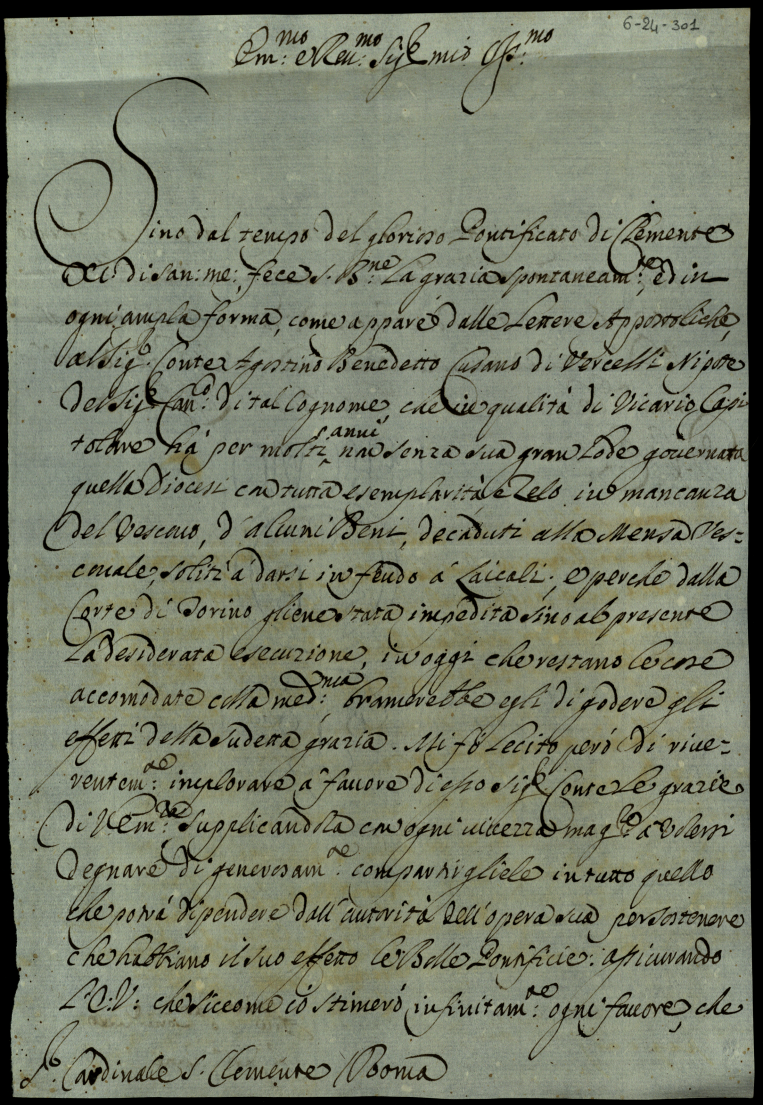 6-24-301
Em.mo e Reu.mo Sig.r mio Oss.mo
Sino dal tempo del glorioso Pontificato di Clemente
XI. di san: me:, fece S. B.ne la grazia spontaneam.te, ed in
ogni ampla forma, come appare dalle Lettere Appostoliche,
al Sig.r Conte Agostino Benedetto Cusano di Vercelli Nipote
del Sig.r Can.co di tal Cognome, che in qualità di Vicario Capi
tolare hà per molti anni, non senza sua gran lode gouernata
quella Diocesi con tutta esemplarità, e Zelo in mancanza
del Vescouo, d'alcuni Beni, decaduti alla Mensa Ves=
couale, soliti à darsi in feudo à Laicali; e perche dalla
Corte di Torino gliene stata impedita sino al presente
la desiderata esecuzione, in oggi che restano le cose
accomodate colla med.ma, bramerebbe egli di godere gli
effetti della sudetta grazia. Mi fò lecito però di riue=
rentem.te implorare à fauore di esso Sig.r Conte le grazie
di V. Em.za supplicandola con ogni uiuezza mag.re à uolersi
degnare di generosam.te compartirgliele in tutto quello
che potrà dipendere dall'autorità dell'opera sua per sostenere
che habbiano il suo effetto le Bolle Pontificie: assicurando
l'E: V: che siccome io stimerò infinitam.te ogni fauore, che
S.r Cardinale S. Clemente Roma